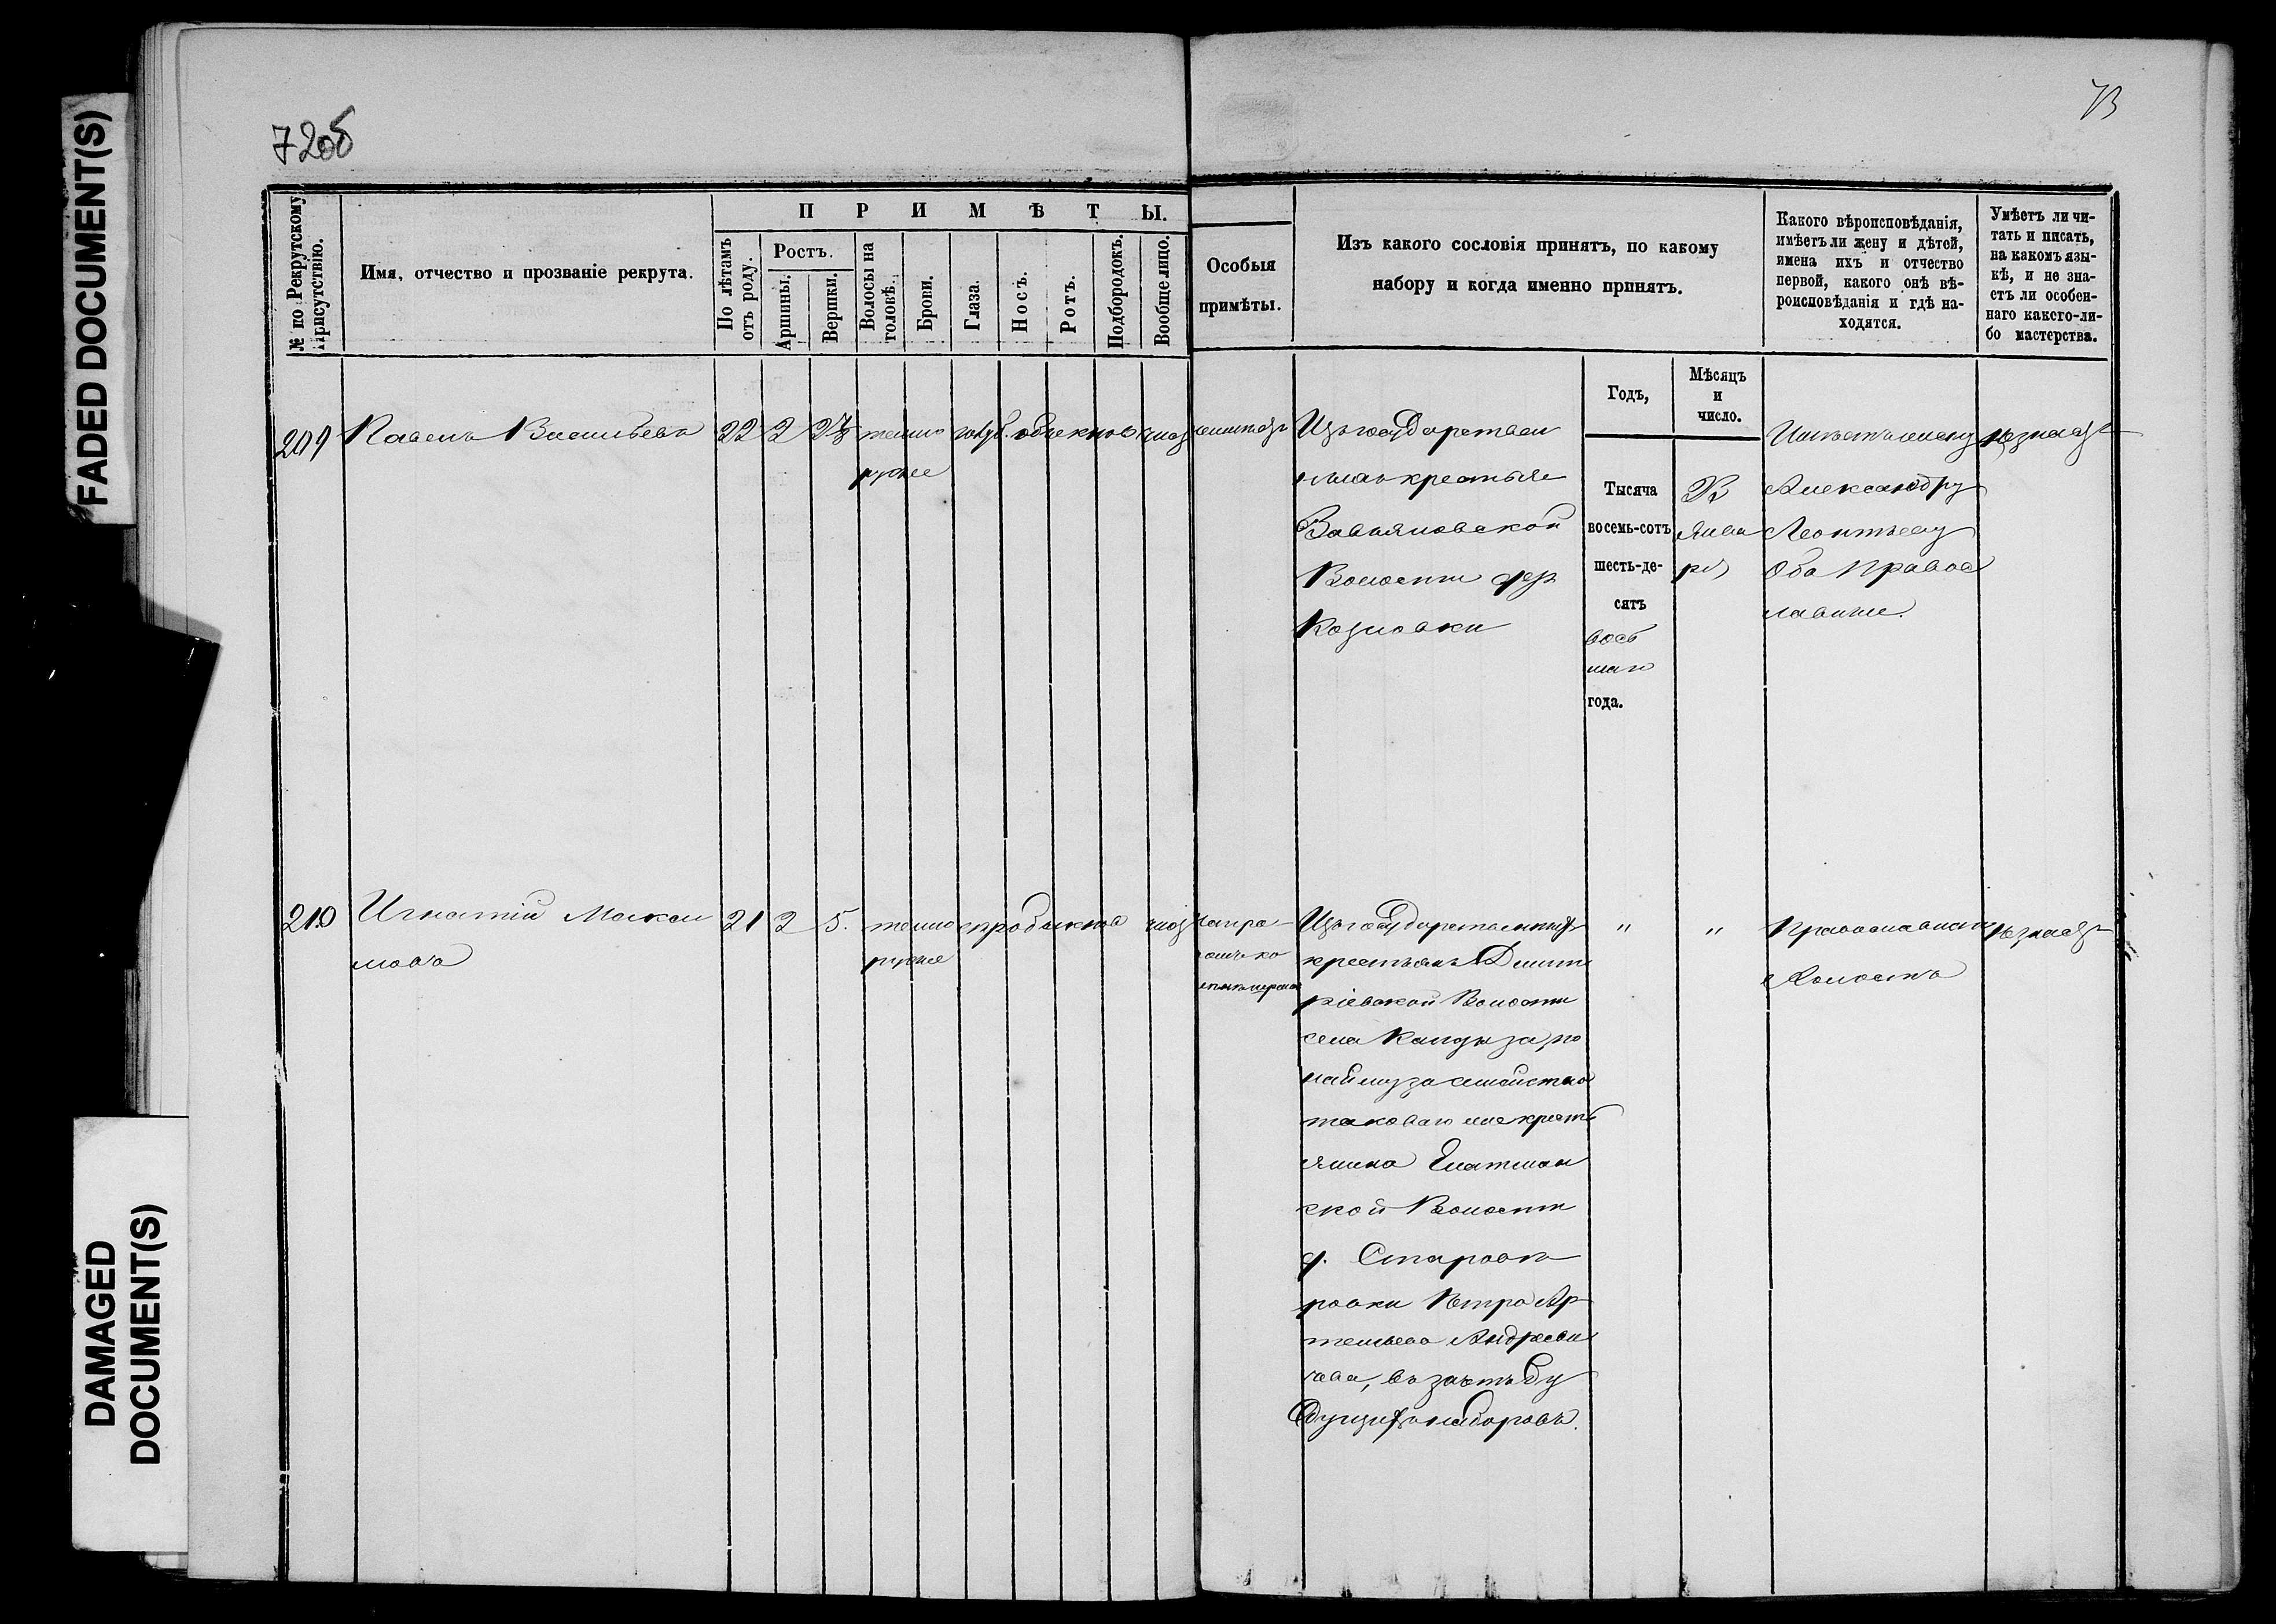 FADED DOCUMENT(S)
DAMAGED
DOCUMENT(S)
72об
73
№ по Рекрутскому
присутствію.
Имя, отчество и прозваніе рекрута.
ПРИМѢТЫ.
По лѣтамъ
отъ роду.
Ростъ.
Аршины.
Вершки.
Волосы на
головѣ.
Брови.
Глаза.
Носъ.
Ротъ.
Подбородокъ.
Вообще лицо.
Особыя
примѣты.
Изъ какого сословія принятъ, по какому
набору и когда именно принятъ.
Какого вѣроисповѣданія,
имѣетъ ли жену и дѣтей,
имена ихъ и отчество
первой, какого онѣ вѣ-
роисповѣданія и гдѣ на-
ходятся.
Умѣетъ ли чи-
тать и писать,
на какомъ язы-
кѣ, и не зна-
етъ ли особен-
наго какого-ли-
бо мастерства.
Годъ,
Мѣсяцъ
и
число.
209 Павелъ Васильевъ 22 2 2⅞ темно голуб. обыкнов чис
русые
Изъ государствен
ныхъ крестьян
Завьяловской
Волости дер
Козловки
Тысяча
восемь-сотъ
шесть-де-
сятъ
вось
маго
года.
Янва
ря
Имѣетъ жену
Александру
Леонтьеву
Оба Правос
лавные.
незнаетъ
210 Игнатій Макси
мовъ
21 2 5. темно сѣр обыкнов чис
русые
Изъ государственныхъ
крестьянъ Дмит
ріевской Волости
села Кандыза, по
найму за семейство
таковаго же кресть
янина Елатман
ской Волости
д. Старова
ровки Петра Ар
темьева Андреева
въ зачетъ бу
дущихъ наборовъ.
" "
Православнаго
Холостъ
незнаетъ